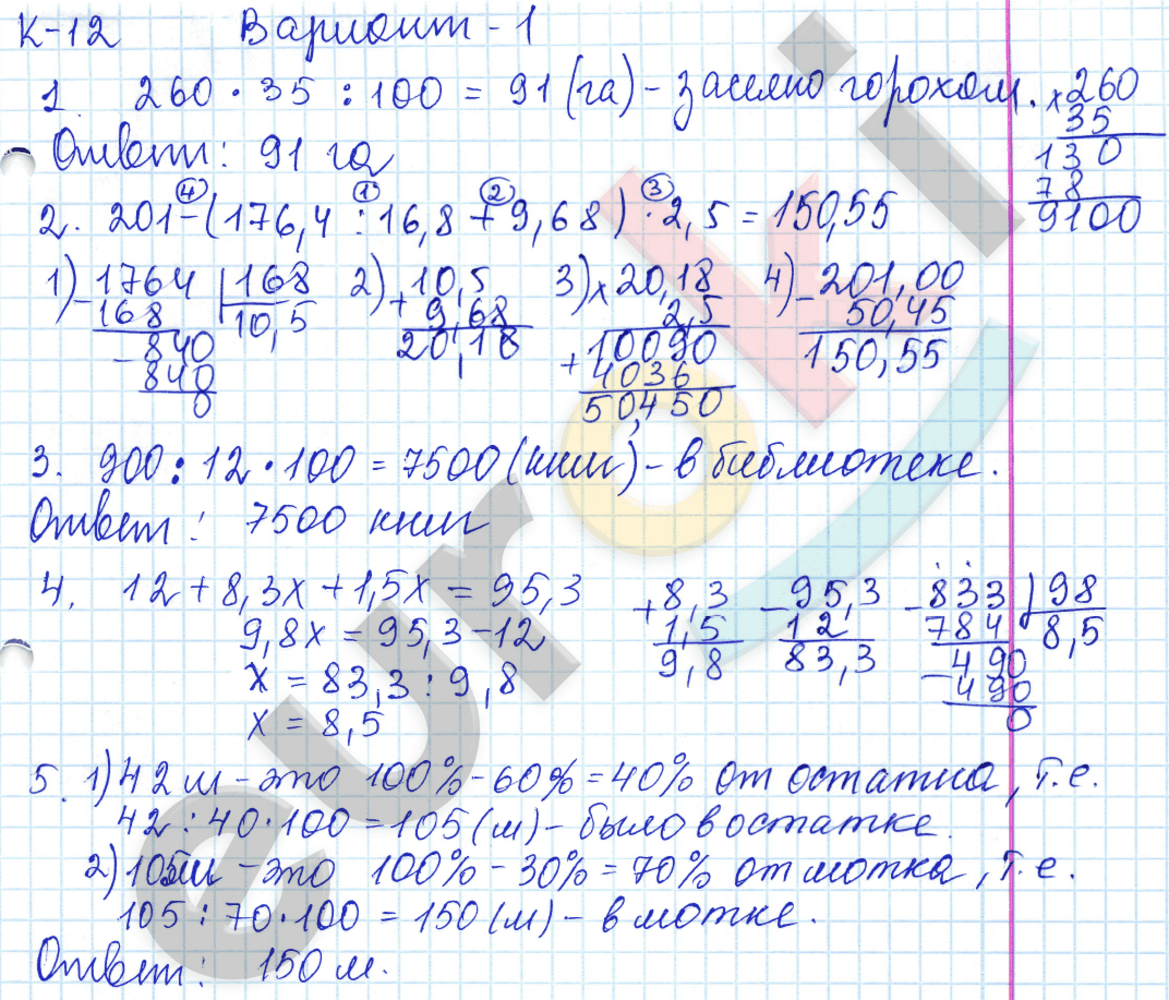 К-12 Вариант - 1
1. 260 · 35 : 100 = 91 (га) - засеяно горохом. × 260
35
Ответ: 91 га
130 0
78
9100
④ ① ② ③
2. 201 - (176,4 : 16,8 + 9,68) · 2,5 = 150,55
1) - 1764 | 168 2) + 10,5 3) × 20,18 4) - 201,00
168 10,5 9,68 2,5 50,45
- 840 20,18 + 10090 150,55
840 4036
0 50,450
3. 900 : 12 · 100 = 7500 (книг) - в библиотеке.
Ответ: 7500 книг
4. 12 + 8,3x + 1,5x = 95,3 + 8,3 - 95,3 - 833 | 98
9,8x = 95,3 - 12 1,5 12 784 8,5
x = 83,3 : 9,8 9,8 83,3 - 490
x = 8,5 490
0
5. 1) 42 м - это 100% - 60% = 40% от остатка, т.е.
42 : 40 · 100 = 105 (м) - было в остатке.
2) 105 м - это 100% - 30% = 70% от мотка, т.е.
105 : 70 · 100 = 150 (м) - в мотке.
Ответ: 150 м.
euroki